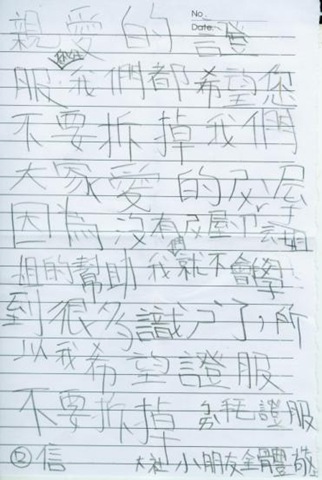 No.
Date:
親愛的 證
服,我們都希望您
不要拆掉我們
大家愛的反屋
因為沒有反屋
姐的幫助我就不會學
到很多識了,所
以我希望證服
不要拆掉 證服
② 信 大社小朋友全體敬